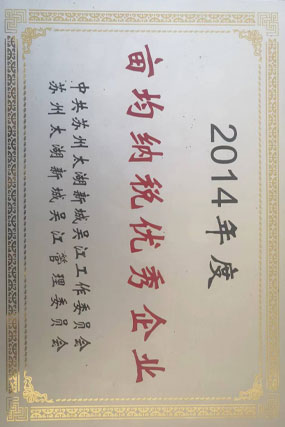 2014年度
亩均纳税优秀企业
中共苏州太湖新城吴江工作委员会
苏州太湖新城吴江管理委员会